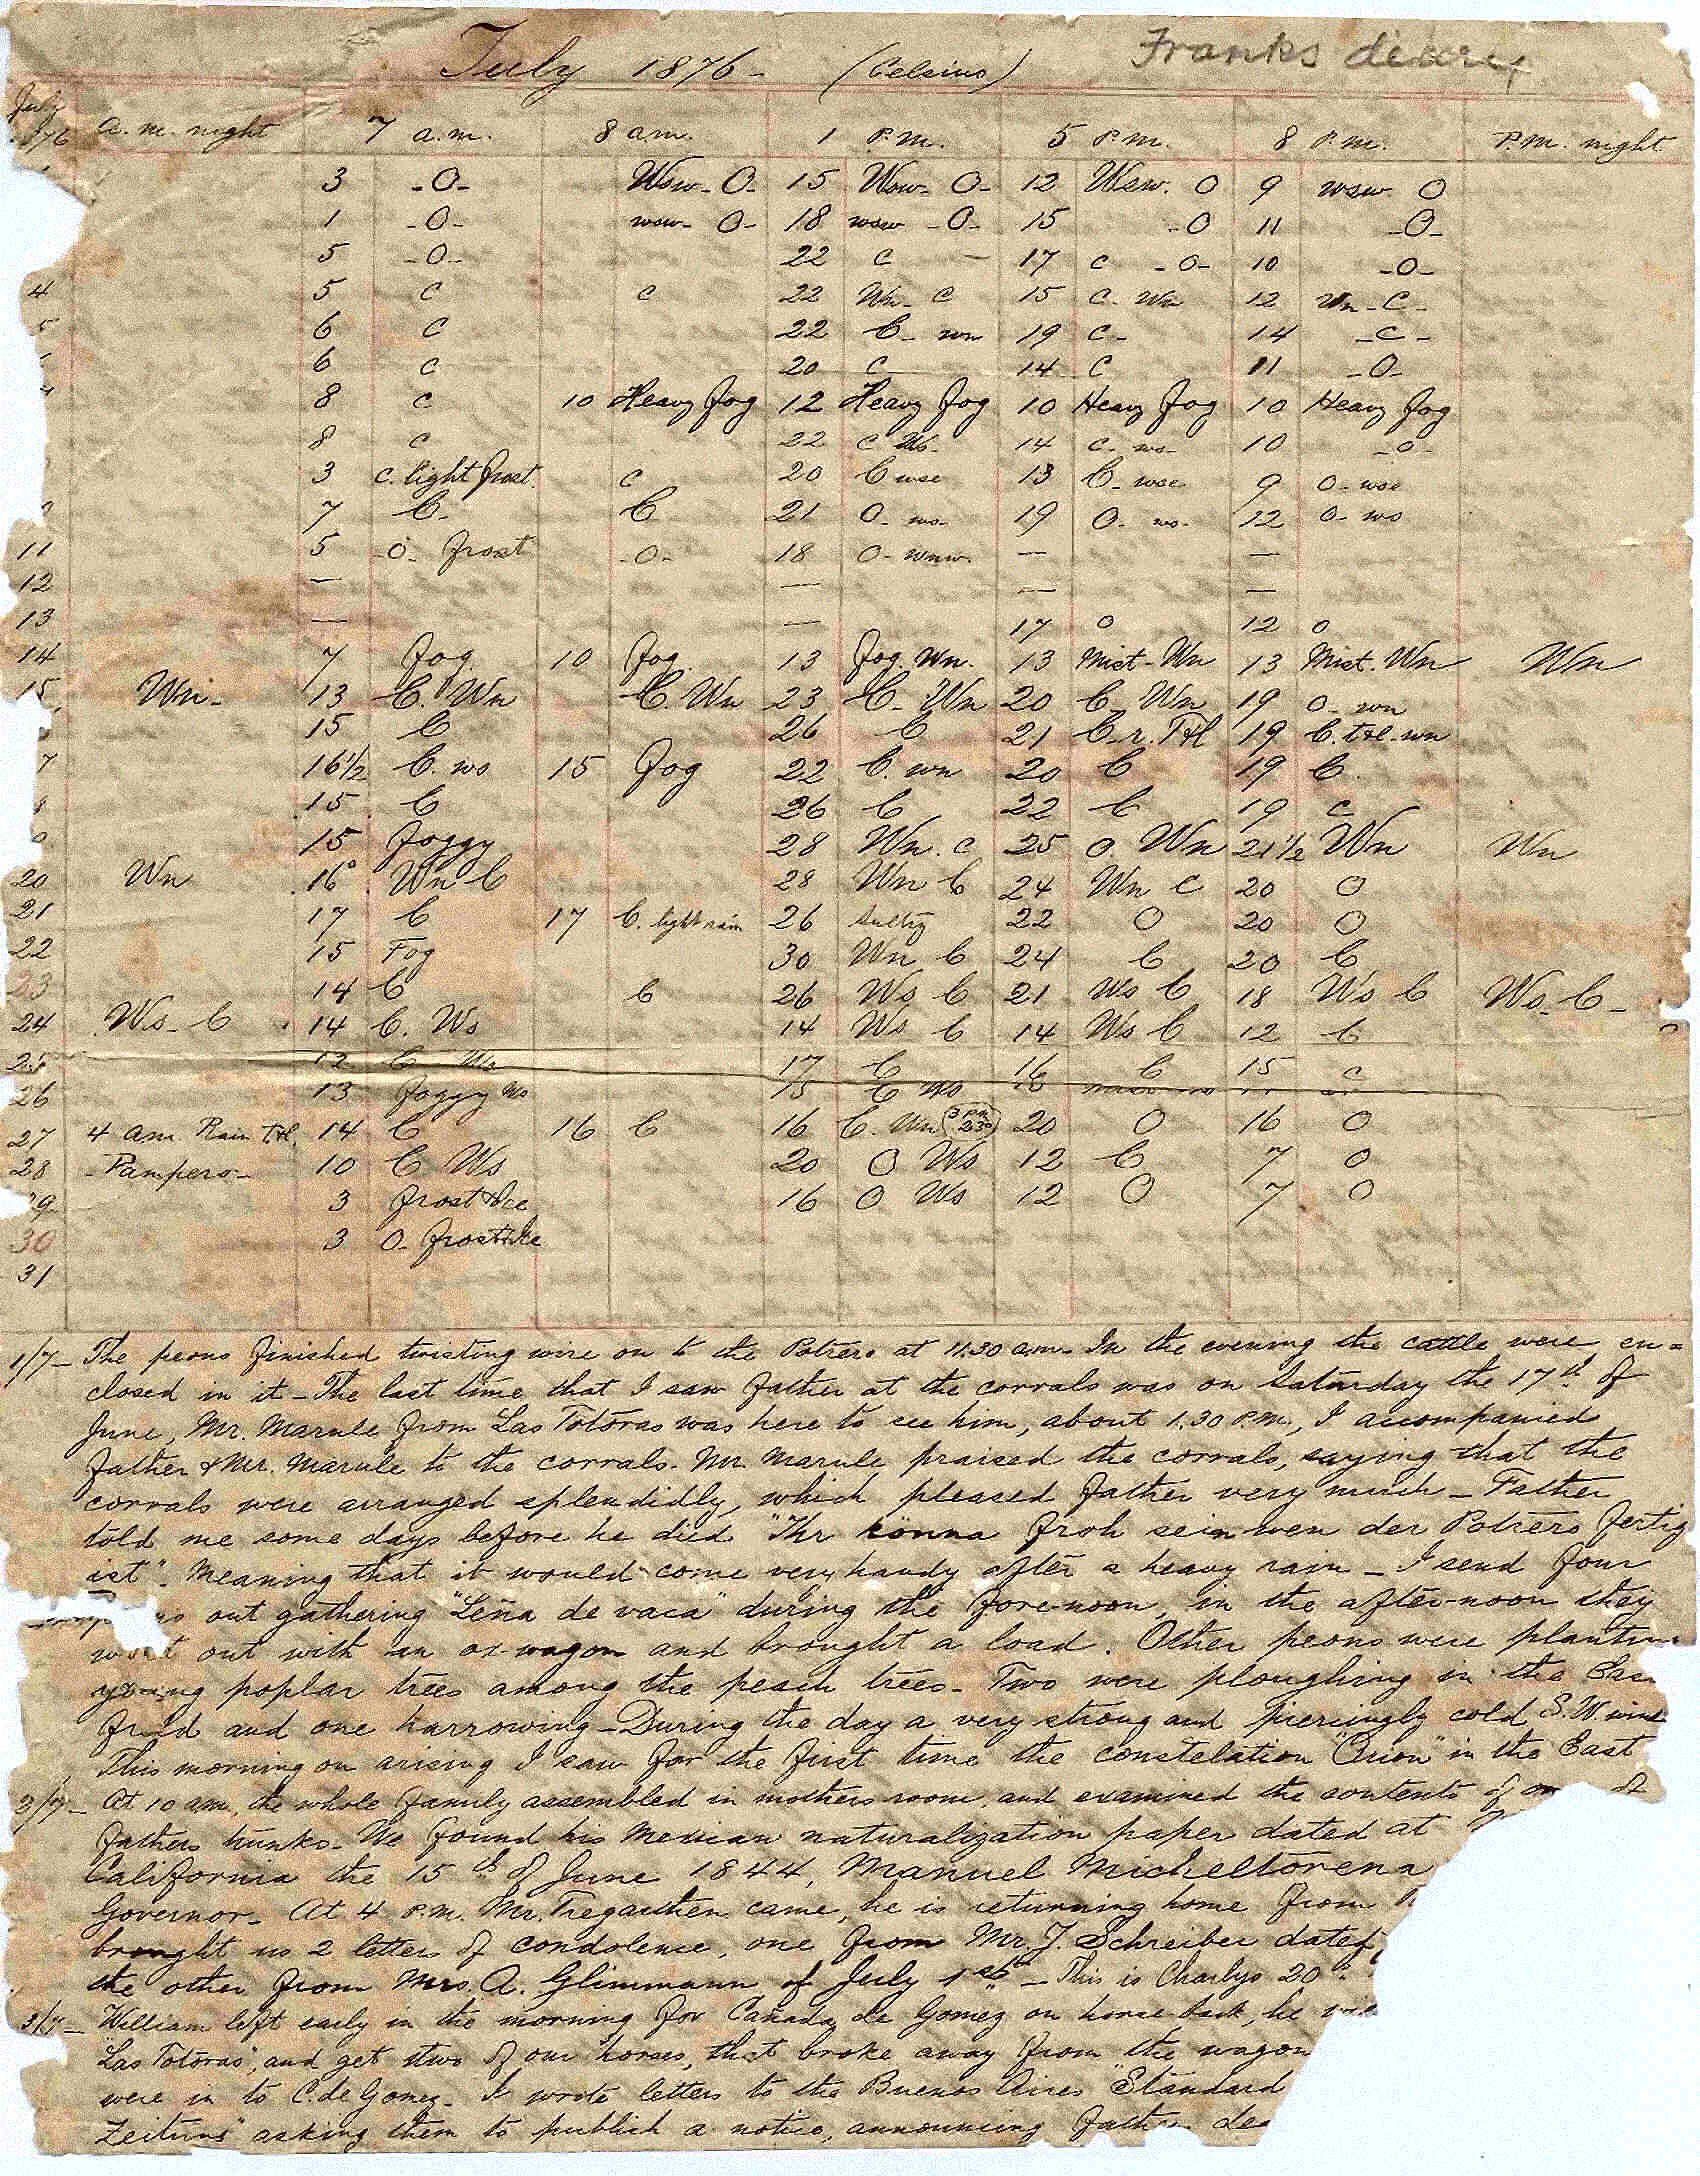 July 1876 - (Celsius) Franks deary
July
1876 a.m. night 7 a.m. 8 a.m. 1 P.M. 5 P.M. 8 P.M. P.M. night
3 -O- Wsw- O- 15 Wsw- O- 12 Wsw. O 9 wsw. O
1 -O- wsw- O- 18 wsw -O- 15 -O 11 -O-
5 -O- 22 c - 17 c -O- 10 -O-
4 5 C c 22 Wn- C 15 C- Wn 12 Wn-C-
5 6 C 22 C- wn 19 C- 14 -C-
6 C 20 C 14 C 11 -O-
8 C 10 Heavy fog 12 Heavy fog 10 Heavy fog 10 Heavy fog
8 c 22 c Ws- 14 c- ws- 10 -o-
3 c. light frost. c 20 C wse 13 C- wse 9 O- wse
7 C- C 21 O- ws- 19 O- ws- 12 O- ws
11 5 -O- frost -O- 18 O- wnw. — —
12 — — — —
13 — — 17 o 12 o
14 7 fog. 10 fog. 13 fog. Wn. 13 Mist-Wn 13 Mist. Wn Wn
15 Wn- 13 C. Wn C. Wn 23 C- Wn 20 C- Wn 19 O- wn
15 C 26 C 21 C-r. T&l 19 C. t&l-wn
7 16½ C. ws 15 fog 22 C. wn 20 C 19 C.
8 15 C 26 C 22 C 19 c
15 foggy 28 Wn. c 25 o. Wn 21½ Wn Wn
20 Wn 16° Wn C 28 Wn C 24 Wn C 20 O
21 17 C 17 C. light rain 26 sultry 22 O 20 O
22 15 Fog 30 Wn C 24 C 20 C
23 14 C C 26 Ws C 21 Ws C 18 Ws C Ws-C-
24 Ws-C 14 C. Ws 14 Ws C 14 Ws C 12 C
25 12 C Ws 17 C 16 C 15 c
26 13 foggy Ws 15 C Ws
27 4 am. Rain T&l. 14 C 16 C 16 C. Wn (3 P.M. 23°) 20 O 16 O
28 -Pampero- 10 C Ws 20 O Ws 12 C 7 O
29 3 frost&Ice 16 O Ws 12 O 7 O
30 3 O- frost&Ice
31
1/7- The peons finished twisting wire on to the Potrero at 11.30 a.m- In the evening the cattle were en=
closed in it - The last time that I saw father at the corrals was on Saturday the 17th of
June, Mr. Marule from Las Totoras was here to see him, about 1.30 P.M., I accompanied
father & Mr. Marule to the corrals. Mr Marule praised the corrals, saying that the
corrals were arranged splendidly, which pleased father very much - Father
told me some days before he died "Ihr könna froh sein wen der Potrero fertig
ist". Meaning that it would come very handy after a heavy rain - I send four
out gathering "Leña de vaca" during the fore-noon, in the after-noon they
went out with an ox-wagon and brought a load. Other peons were plantin
young poplar trees among the peach trees - Two were ploughing in the Eas
field and one harrowing - During the day a very strong and piercingly cold S.W. wind
This morning on arising I saw for the first time the constelation "Orion" in the East
2/7- At 10 a.m., the whole family assembled in mothers room, and examined the contents of one of
fathers trunks. We found his Mexican naturalization paper dated at
California the 15th of June 1844, Manuel Micheltorena
Governor. At 4 P.M. Mr. Tregarthen came, he is returning home from
brought us 2 letters of condolence, one from Mr J. Schreiber dated
the other from Mrs. A. Glimmann of July 1st - This is Charlys 20th
3/7- William left early in the morning for Cañada de Gomez on horse-back, he will
"Las Totoras", and get two of our horses, that broke away from the wagon
were in to C. de Gomez. I wrote letters to the Buenos Aires "Standard
Zeitung" asking them to publish a notice, announcing fathers dea